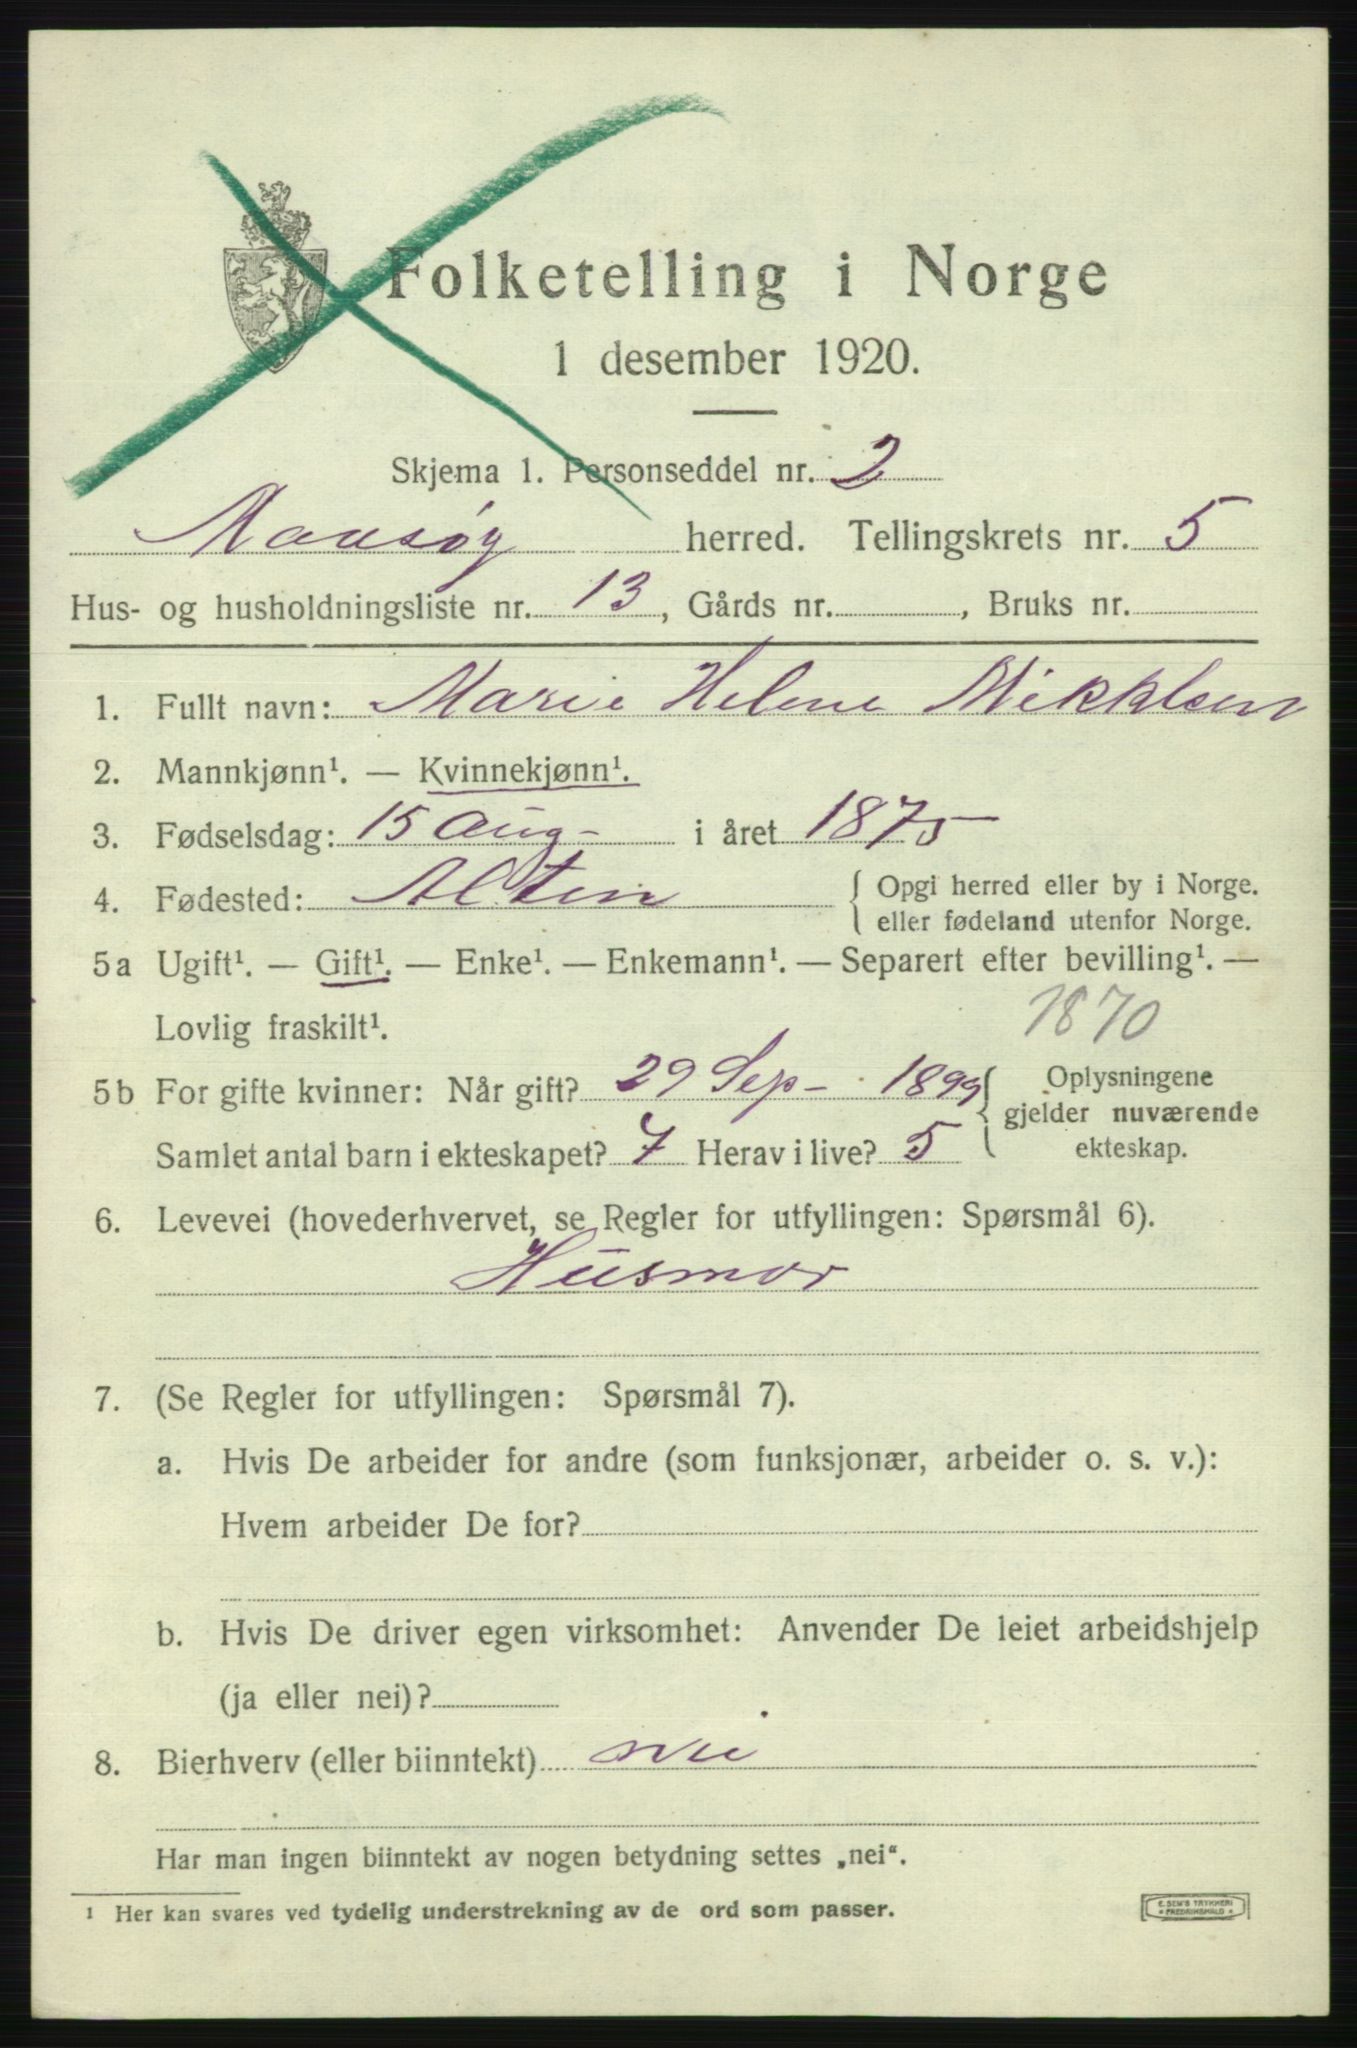 Folketelling i Norge
1 desember 1920.
Skjema 1. Personseddel nr. 2
Maasøy herred. Tellingskrets nr. 5
Hus- og husholdningsliste nr. 13, Gårds nr. , Bruks nr.
1. Fullt navn: Marie Helene Mikklsen
2. Mannkjønn¹. — Kvinnekjønn¹.
3. Fødselsdag: 15 Aug- i året 1875
4. Fødested: Alten { Opgi herred eller by i Norge.
eller fødeland utenfor Norge.
5a Ugift¹. — Gift¹. — Enke¹. — Enkemann¹. — Separert efter bevilling¹. —
Lovlig fraskilt¹. 1870
5b For gifte kvinner: Når gift? 29 Sep- 1899 { Oplysningene
gjelder nuværende
Samlet antal barn i ekteskapet? 7 Herav i live? 5 ekteskap.
6. Levevei (hovederhvervet, se Regler for utfyllingen: Spørsmål 6).
Husmor
7. (Se Regler for utfyllingen: Spørsmål 7).
a. Hvis De arbeider for andre (som funksjonær, arbeider o. s. v.):
Hvem arbeider De for?
b. Hvis De driver egen virksomhet: Anvender De leiet arbeidshjelp
(ja eller nei)?
8. Bierhverv (eller biinntekt) nei
Har man ingen biinntekt av nogen betydning settes „nei“.
¹ Her kan svares ved tydelig understrekning av de ord som passer.
E. SEM'S TRYKKERI
* FREDRIKSHALD *